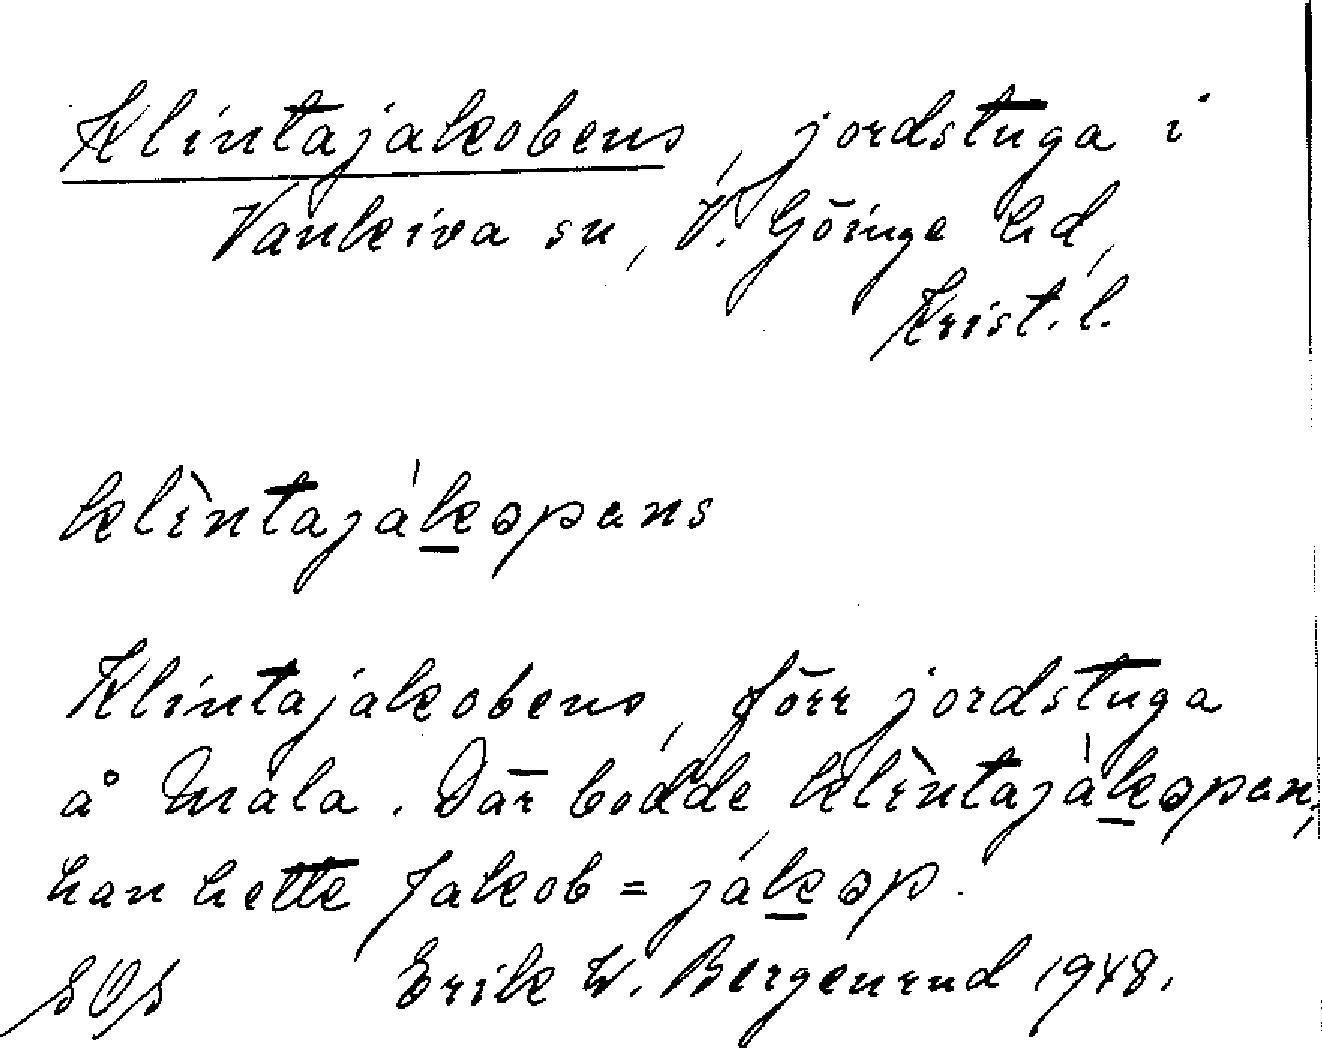 Klintajakobens, jordstuga i
Vankiva sn, V. Göinge hd,
Krist. l.
klìntaják̲əpans
Klintajakobens, förr jordstuga
å Mala. Där bodde klìntajàk̲əpan,
han hette Jakob =ják̲əp.
Erik W. Bergenrud 1948.